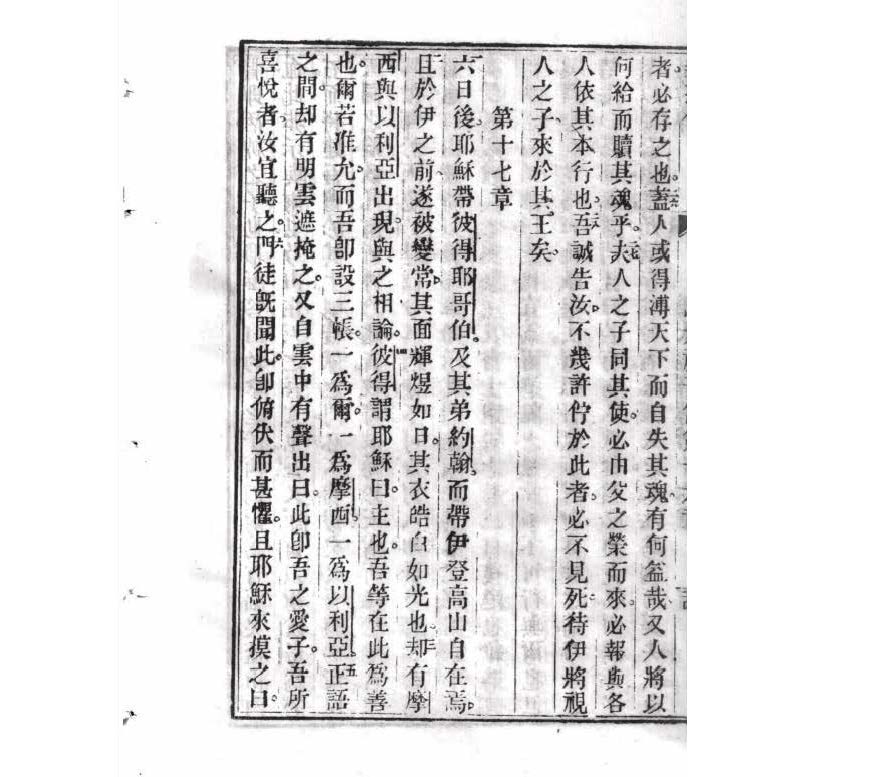 者必存之也蓋人或得溥天下而自失其魂有何益哉又人將以
何給而贖其魂乎夫人之子同其使必由父之榮而來必報與各
人依其本行也吾誠告汝不幾許佇於此者必不見死待伊將視
人之子來於其王矣
第十七章
六日後耶穌帶彼得耶哥伯及其弟約翰而帶伊登高山自在焉
且於伊之前遂被變常其面輝煜如日其衣皓白如光也却有摩
西與以利亞出現與之相論彼得謂耶穌曰主也吾等在此為善
也爾若准允而吾卽設三帳一為爾一為摩西一為以利亞正語
之間却有明雲遮掩之又自雲中有聲出曰此卽吾之愛子吾所
喜悅者汝宜聽之門徒旣聞此卽俯伏而甚懼且耶穌來摸之曰